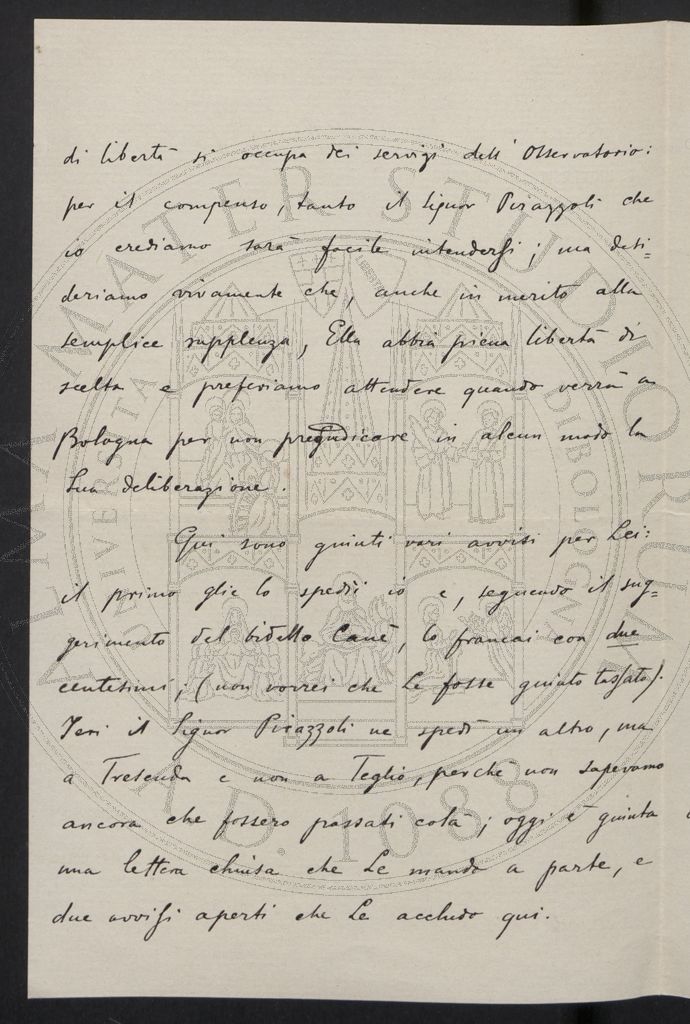 di libertà si occupa dei servizi dell'Osservatorio:
per il compenso, tanto il Signor Pirazzoli che
io crediamo sarà facile intendersi; ma desi=
deriamo vivamente che, anche in merito alla
semplice supplenza, Ella abbia piena libertà di
scelta e preferiamo attendere quando verrà a
Bologna per non pregiudicare in alcun modo la
Sua deliberazione.
Qui sono giunti vari avvisi per Lei:
il primo glie lo spedii io e, seguendo il sug=
gerimento del bidello Canè, lo francai con due
centesimi; (non vorrei che Le fosse giunto tassato).
Ieri il Signor Pirazzoli ne spedì un altro, ma
a Tresenda e non a Teglio, perchè non sapevamo
ancora che fossero passati colà; oggi è giunta
una lettera chiusa che Le mando a parte, e
due avvisi aperti che Le accludo qui.
ALMA MATER STUDIORUM
UNIVERSITÀ DI BOLOGNA
A.D. 1088